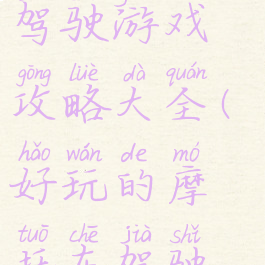 驾驶游戏
gōng lüè dà quán
攻略大全(
hǎo wán de mó
好玩的摩
tuō chē jià shǐ
托车驾驶